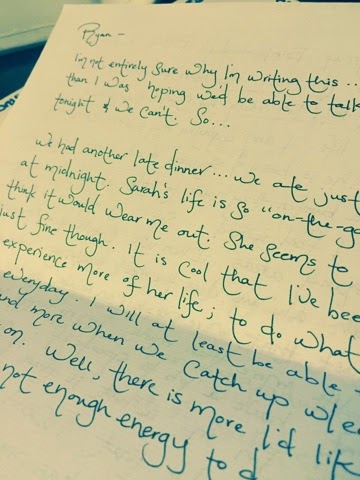 Ryan -
I'm not entirely sure why I'm writing this ...
than I was hoping we'd be able to talk
tonight & we can't. So...
we had another late dinner... we ate just
at midnight. Sarah's life is so "on-the-go
think it would wear me out. She seems to
just fine though. It is cool that I've been
experience more of her life; to do what
everyday. I will at least be able
and more when we catch up w/ea
on. Well, there is more I'd lik
not enough energy to d